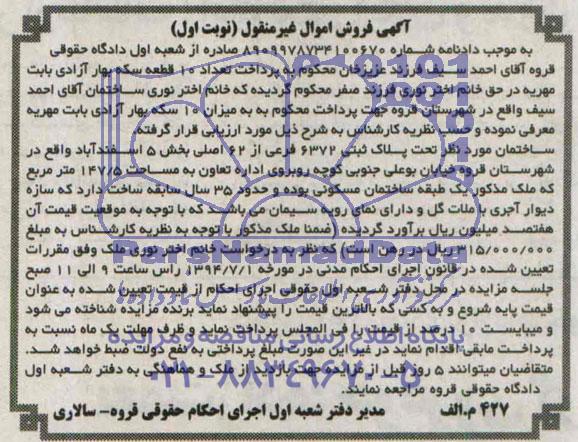 آگهی فروش اموال غیرمنقول (نوبت اول)
به موجب دادنامه شماره ۸۹۰۹۹۷۸۷۳۴۱۰۰۶۷۰ صادره از شعبه اول دادگاه حقوقی
قروه آقای احمد سیف فرزند عزیزخان محکوم به پرداخت تعداد ۱۰ قطعه سکه بهار آزادی بابت
مهریه در حق خانم اختر نوری فرزند صفر محکوم گردیده که خانم اختر نوری ساختمان آقای احمد
سیف واقع در شهرستان قروه جهت پرداخت محکوم به به میزان ۱۰ سکه بهار آزادی بابت مهریه
معرفی نموده و حسب نظریه کارشناس به شرح ذیل مورد ارزیابی قرار گرفته
ساختمان مورد نظر تحت پلاک ثبتی ۶۳۷۲ فرعی از ۶۲ اصلی بخش ۵ اسفندآباد واقع در
شهرستان قروه خیابان بوعلی جنوبی کوچه روبروی اداره تعاون به مساحت ۱۴۷/۵ متر مربع
که ملک مذکور یک طبقه ساختمان مسکونی بوده و حدود ۳۵ سال سابقه ساخت دارد که سازه
دیوار آجری با ملات گل و دارای نمای رویه سیمان می باشد که با توجه به موقعیت قیمت آن
هفتصد میلیون ریال برآورد گردیده (ضمنا ملک مذکور با توجه به نظریه کارشناس به مبلغ
۳۱۵/۰۰۰/۰۰۰ ریال در رهن است) که نظر به درخواست خانم اختر نوری ملک وفق مقررات
تعیین شده در قانون اجرای احکام مدنی در مورخه ۱۳۹۴/۷/۱ راس ساعت ۹ الی ۱۱ صبح
جلسه مزایده در محل دفتر شعبه اول حقوقی اجرای احکام از قیمت تعیین شده به عنوان
قیمت پایه شروع و به کسی که بالاترین قیمت را پیشنهاد نماید برنده مزایده شناخته می شود
و میبایست ۱۰ درصد از قیمت را فی المجلس پرداخت نماید و ظرف مهلت یک ماه نسبت به
پرداخت مابقی اقدام نماید در غیر این صورت مبلغ پرداختی به نفع دولت ضبط خواهد شد.
متقاضیان میتوانند ۵ روز قبل از مزایده جهت بازدید از ملک و هماهنگی به دفتر شعبه اول
دادگاه حقوقی قروه مراجعه نمایند.
۴۲۷ م.الف مدیر دفتر شعبه اول اجرای احکام حقوقی قروه- سالاری
ParsNamadData
پایگاه اطلاع رسانی مناقصه و مزایده
۰۲۱-۸۸۳۴۹۶۷۰-۵